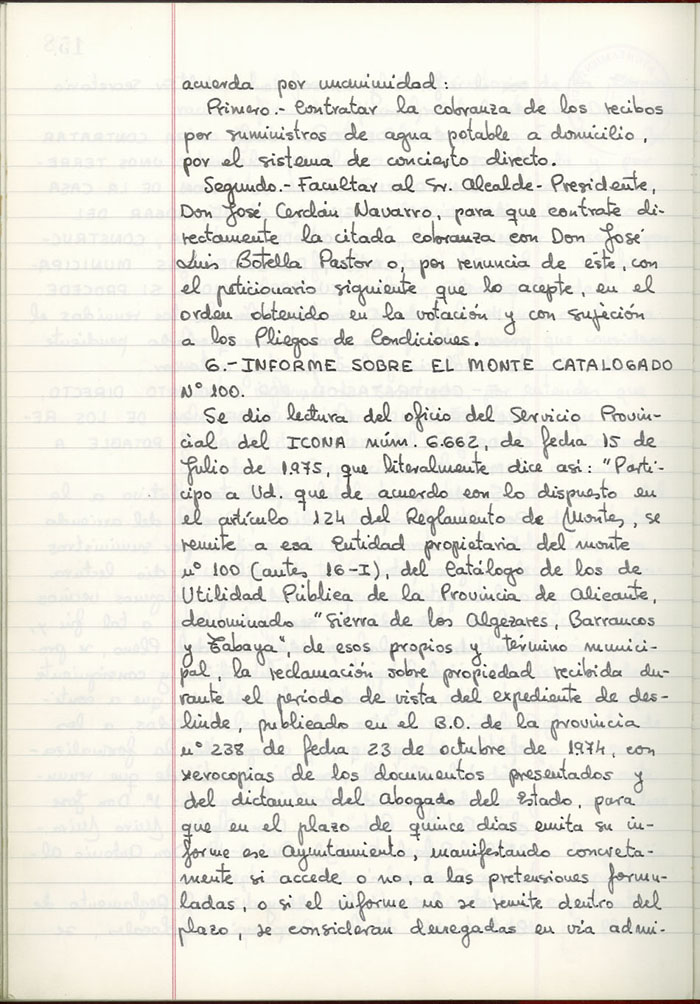 acuerda por unanimidad:
Primero.- Contratar la cobranza de los recibos
por suministros de agua potable a domicilio,
por el sistema de concierto directo.
Segundo.- Facultar al Sr. Alcalde-Presidente,
Don José Cerdán Navarro, para que contrate di-
rectamente la citada cobranza con Don José
Luis Botella Pastor o, por renuncia de éste, con
el peticionario siguiente que lo acepte, en el
orden obtenido en la votación y con sujeción
a los Pliegos de Condiciones.
6.- INFORME SOBRE EL MONTE CATALOGADO
Nº 100.
Se dio lectura del oficio del Servicio Provin-
cial del ICONA núm. 6.662, de fecha 15 de
Julio de 1.975, que literalmente dice así: "Parti-
cipo a Ud. que de acuerdo con lo dispuesto en
el artículo 124 del Reglamento de Montes, se
remite a esa Entidad propietaria del monte
nº 100 (antes 16-I), del Catálogo de los de
Utilidad Pública de la Provincia de Alicante,
denominado "Sierra de los Algezares, Barrancos
y Tabaya", de esos propios y término munici-
pal, la reclamación sobre propiedad recibida du-
rante el período de vista del expediente de des-
linde, publicado en el B.O. de la provincia
nº 238 de fecha 23 de octubre de 1974, con
xerocopias de los documentos presentados y
del dictamen del Abogado del Estado, para
que en el plazo de quince días emita su in-
forme ese Ayuntamiento, manifestando concreta-
mente si accede o no, a las pretensiones formu-
ladas, o si el informe no se remite dentro del
plazo, se consideran denegadas en vía admi-